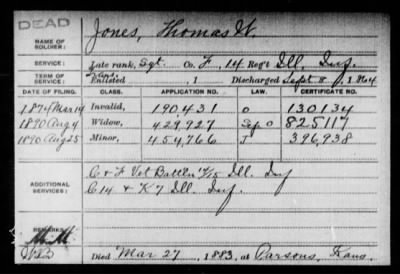 DEAD
NAME OF SOLDIER: Jones, Thomas W.
SERVICE: Late rank, Sgt. Co. F, 14 Reg't Ill. Inf.
TERM OF SERVICE: Enlisted , 1 Discharged Sept 8, 1864
DATE OF FILING. CLASS. APPLICATION NO. LAW. CERTIFICATE NO.
1874 Mar 14 Invalid, 190,431 O 130134
1890 Aug 4 Widow, 429,927 825117
1890 Aug 25 Minor, 454,766 J 396,938
ADDITIONAL SERVICES: C & F Vet Battln 14/15 Ill. Inf
C 14 & K 7 Ill. Inf.
REMARKS:
Died Mar 27, 1883, at Parsons, Kans.